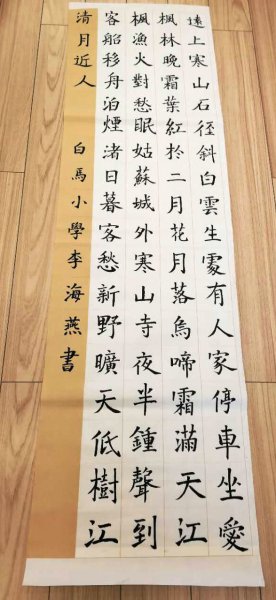 遠上寒山石径斜白雲生處有人家停車坐愛
楓林晚霜葉紅於二月花月落烏啼霜滿天江
楓漁火對愁眠姑蘇城外寒山寺夜半鍾聲到
客船移舟泊煙渚日暮客愁新野曠天低樹江
清月近人
白馬小學李海燕書